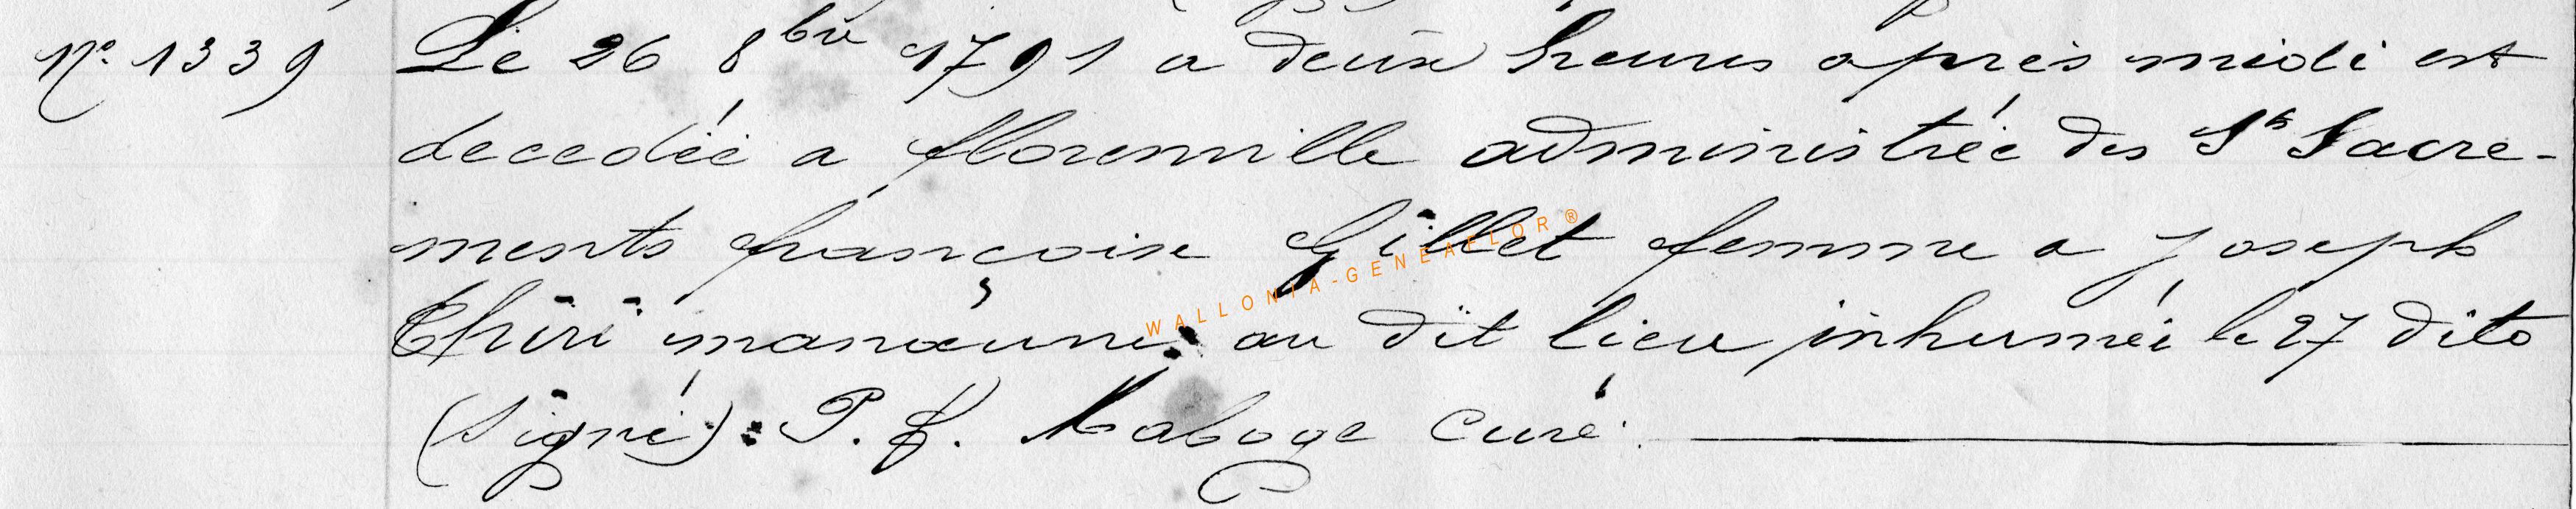 N° 1339 Le 26 8bre 1791 a deux heures après midi est
decedéé a florenville administrée des Sts Sacre-
ments françoise Gillet femme a joseph
Thiri manœuvre au dit lieu inhumée le 27 dito
(signé): P. H. Maboge Curé.
WALLONIA-GENEAFLOR®